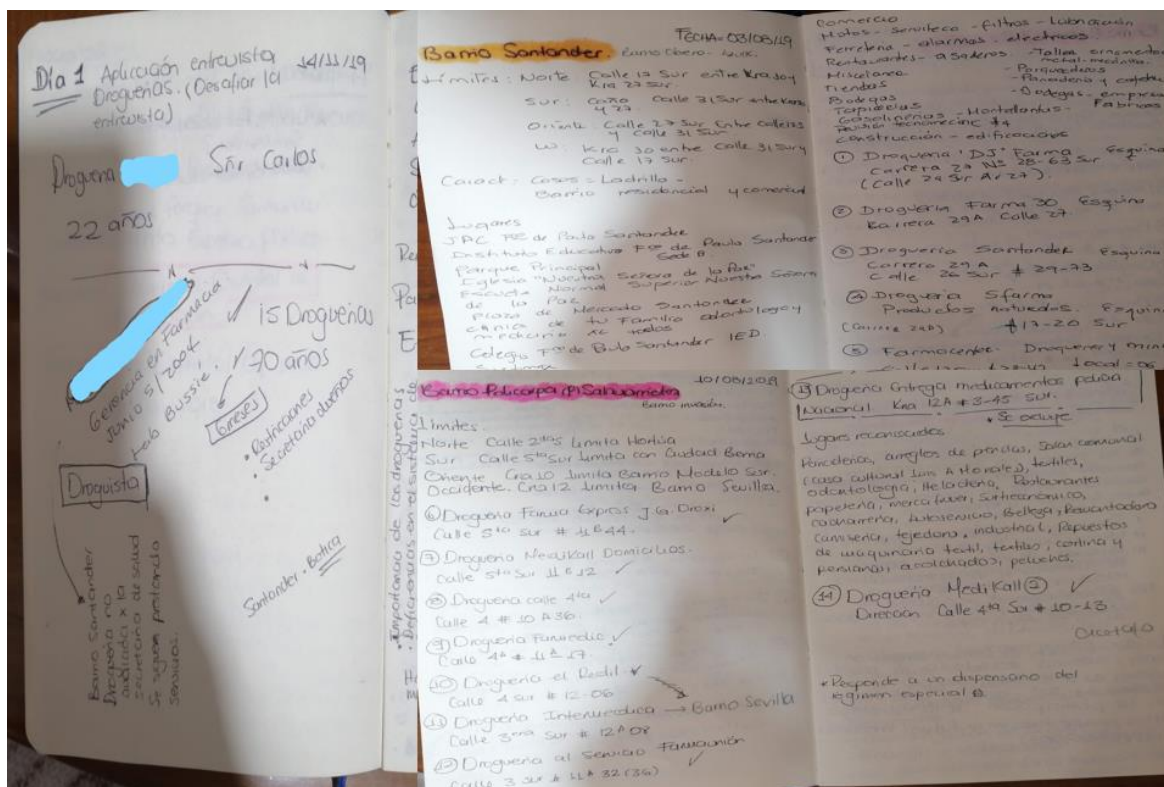 Día 1 Aplicación entrevista 14/11/19
Droguerías. (Desafiar la
entrevista)
Droguería Sñr Carlos
22 años
Gerencia en Farmacia
Junio 5/2004
15 Droguerías
70 años
6 meses
• Restricciones
Secretaría
•
Droguista
Barrio Santander
Droguería no
x la
secretaría de salud
Se siguen prestando
servicios.
Santander • Botica
• Importancia de las droguerías
• Deficiencias en el sistema de
FECHA = 03/08/19
Barrio Santander. Barrio Obrero
Límites: Norte Calle 17 Sur entre Kra 30 y
Kra 27 Sur.
Sur: Caño Calle 31 Sur entre Kra 30
y 27.
Oriente: Calle 27 Sur entre Calle 17 Sur
y Calle 31 Sur.
W: Kra 30 entre Calle 31 Sur y
Calle 17 Sur.
Caract: Casas = Ladrillo -
Barrio residencial y comercial
Lugares
JAC Fco de Paula Santander
Instituto Educativo Fco de Paula Santander
Sede B.
Parque Principal
Iglesia "Nuestra Señora de la Paz"
Escuela Normal Superior Nuestra Señora
de la Paz
Plaza de Mercado Santander
de tu Familia odontología y
medicina
Colegio Fco de Paula Santander IED.
Comercio
Motos - Serviteca - filtros - Lubricación
Ferretería - alarmas - eléctricos
Restaurantes - asaderos - Taller ornamentación
metal-mecánica.
Miscelanea - Parqueaderos
Tiendas - Panadería y cafetería
Bodegas - Bodegas - empresa
Tapicerías - Montallantas - Fabricas
Gasolineras
Construcción - edificaciones
① Droguería "DJ" Farma Esquina
Carrera 28 Nº 28-63 Sur
(Calle 29 Sur Av 27).
② Droguería Farma 30 Esquina
Carrera 29A Calle 27
③ Droguería Santander Esquina
Carrera 29 A
Calle 26 Sur # 29-73
④ Droguería Sfarma
Productos Naturales. Esquina
(Carrera 28B) #17-20 Sur
⑤ Farmacenter Droguería y mini
Local = 06
Barrio Policarpa Salavarrieta 10/08/2019
Barrio invasión.
Límites.
Norte Calle 2da Sur Limita Hortúa
Sur Calle 5ta Sur Limita con Ciudad Berna
Oriente Cra 10 Limita Barrio Modelo Sur.
Occidente. Cra 12 Limita Barrio Sevilla.
⑥ Droguería Farma Express J.G. Droxi
Calle 5ta Sur # 11B 44.
⑦ Droguería Medikall Domicilios.
Calle 5ta Sur 11 B 12
⑧ Droguería calle 4ta
Calle 4 # 10 A 36.
⑨ Droguería Farmedic
Calle 4A # 11A 17.
⑩ Droguería el Redil
Calle 4 Sur # 12-06
⑪ Droguería Intermedica → Barrio Sevilla
Calle 3rra Sur # 12A 08
⑫ Droguería al Servicio Farmaunión
Calle 3 Sur # 11A 32 (36)
⑬ Droguería Entrega medicamentos policía
Nacional Kra 12A # 3-45 Sur.
* Se excluye
Lugares reconocidos
Panaderías, arreglos de prendas, Salón comunal
(casa cultural Luis A Morales), textiles,
odontología, Heladería, Restaurantes
papelería, merca fruver, Surtieconómico,
cacharrería, Autoservicio, Belleza, Remontadora
Camisería, tejeduría, industrial, Repuestos
de maquinaria textil, textiles, cortina y
persianas, acolchados, peluches.
⑭ Droguería Medikall ②
Dirección Calle 4ta Sur # 10-13
* Responde a un dispensario del
régimen especial